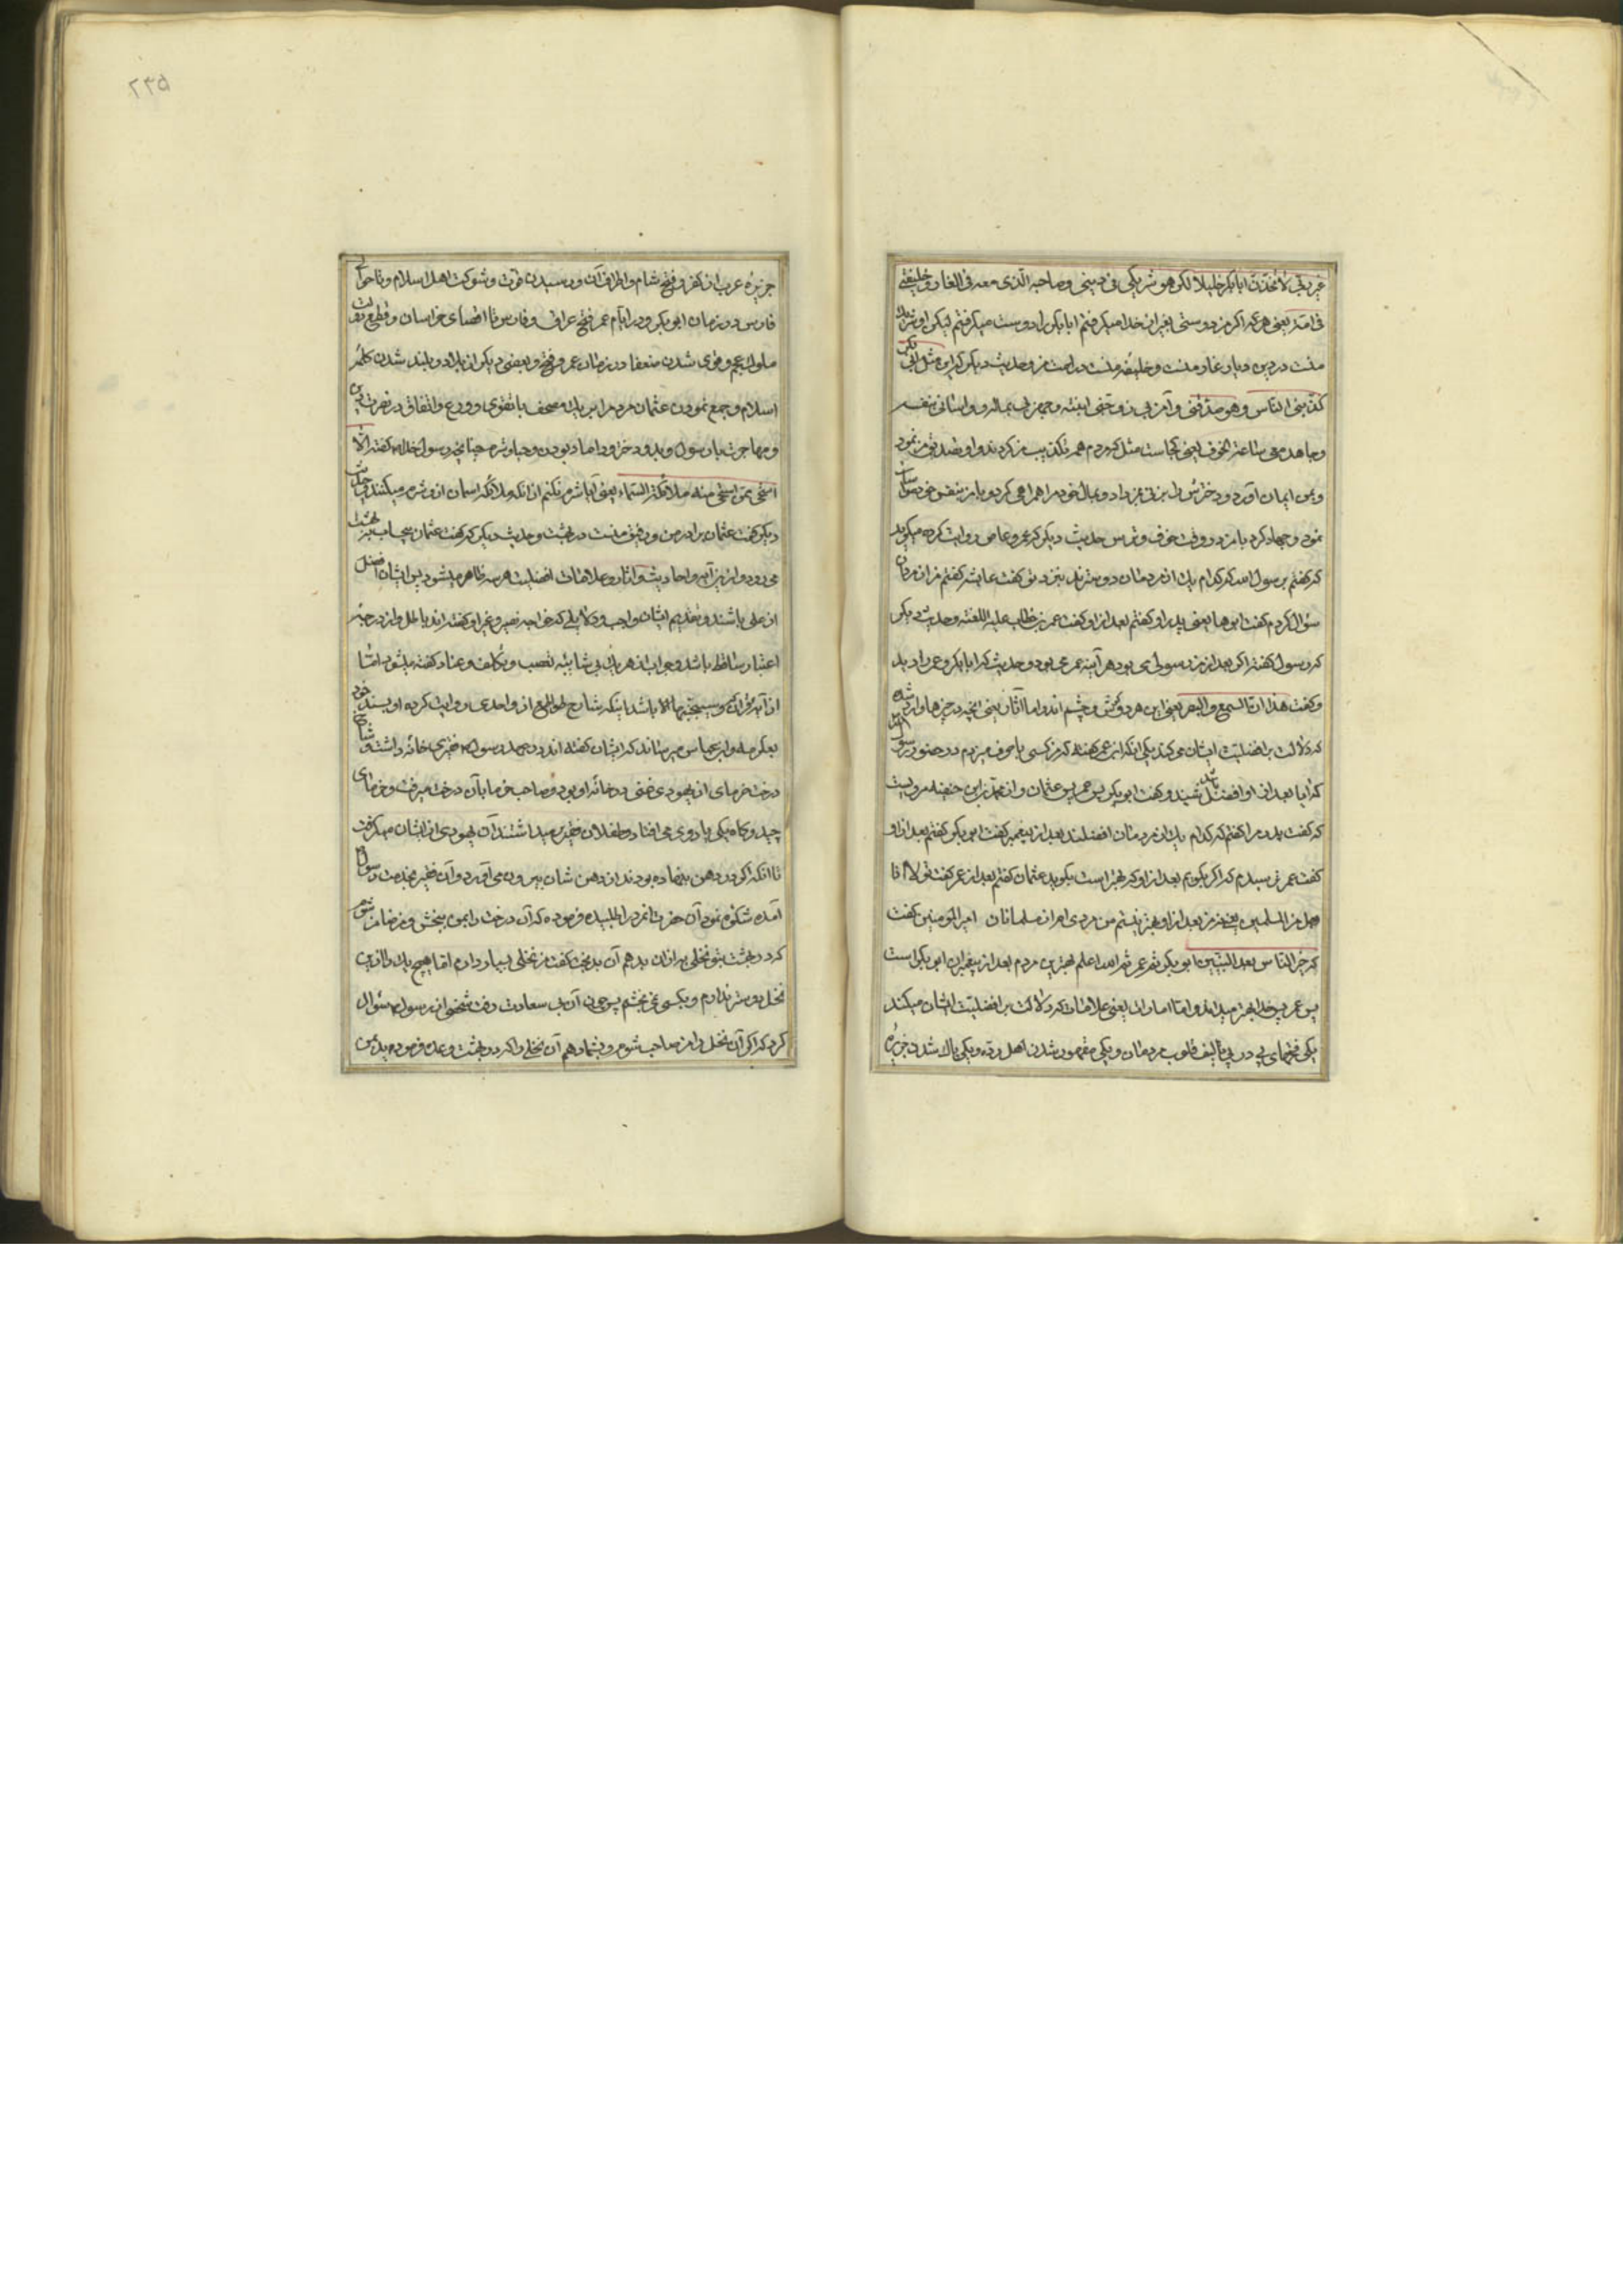 غیر ربی لاتخذت ابابکر خلیلا لکن هو شریکی فی دینی و صاحبه الذی معه فی الغار و خلیفتی
فی امته یعنی هر کـه اگر من دوستی بغیر از خدا میگرفتم ابابکر را دوست میگرفتم لیکن او شریک
منست در دین و یار غار منست و خلیفه منست در امت من و حدیث دیگر که این مثل ابی بکر
کذبنی الناس و هو صدقنی و آمن بی و زوجنی ابنته و جهزنی بماله و واسانی بنفسه
و جاهد معی ساعة الخوف یعنی کجاست مثل که مردم همه تکذیب من کردند و او تصدیق من نمود
و بمن ایمان آورد و دخترش را بزنی بمن داد و بمال خود مرا همراهی کرد و با من بنفس خود مواسات
نمود و جهاد کرد با من در وقت خوف و ترس حدیث دیگر که عمرو عاص روایت کرده میگوید
که گفتم برسول الله که کدام یک از مردمان دوسترند بنزد تو گفت عایشه گفتم من از مردان
سؤال کردم گفت ابوها یعنی پدر او گفتم بعد از او گفت عمر بن خطاب علیه اللعنة و حدیث دیگر
که رسول گفته اگر بعد از من رسولی می بود هر آینه عمر می بود و حدیث که ابابکر و عمر را دید
و گفت هذان السمع و البصر یعنی این هر دو گوش و چشم اند و اما آثار یعنی آنچه در خبرها وارد شده
که دلالت بر افضلیت ایشان می کند یکی آنکه ابن عمر گفته که هر کسی با حرف میزدیم در حضور رسول
که آیا بعد از او افضل باشید و گفت ابوبکر پس عمر پس عثمان و از محمد بن حنفیه مرویست
که گفت پدر مرا گفتم که کدام یک از مردمان افضلند بعد از پیغمبر گفت ابوبکر گفتم بعد از او
گفت عمر ترسیدم که اگر بگویم بعد از او که بهتر است بگوید عثمان گفتم بعد از عمر گفت تو لا انا
رجل من المسلمین یعنی من بعد از او بهتر نیستم من مردی ام از مسلمانان امیر المومنین گفت
که خیر الناس بعد النبیین ابوبکر ثم عمر ثم الله اعلم بهترین مردم بعد از پیغمبران ابوبکر است
پس عمر پس خدا بهتر میداند و اما امارات یعنی علامات که دلالت بر افضلیت ایشان میکند
یکی فتحهای پی در پی تألیف قلوب مردمان و یکی مقهور شدن اهل رده و یکی پاک شدن جزیره
۲۳۵
جزیره عرب از کفر و فتح شام و اطراف آن و رسیدن قوت و شوکت اهل اسلام و تا حوالی
فارس در زمان ابوبکر و در ایام عمر فتح عراق و فارس تا اقصای خراسان و قطع دولت
ملوک عجم و قوی شدن ضعفا در زمان عمر و فتح و بعضی دیگر از بلاد و بلند شدن کلمه
اسلام و جمع نمودن عثمان مردم را بر یک مصحف با تقوی و ورع و اتفاق در نصرت دین
و مهاجرت با رسول و بدو دختر او داماد بودن و حیا و شرم چنانچه رسول خدا گفته الا
استحی ممن استحی منه ملائکة السماء یعنی آیا شرم نکنم از آنکه ملائکه اسمان از او شرم میکنند حدیث
دیگر گفت عثمان برادر من و رفیق منست در بهشت و حدیث دیگر که گفت عثمان بیحساب ببهشت
می رود و از این آیه و احادیث و آثار و علامات افضلیت هر سه ظاهر میشود پس ایشان افضل
از علی باشند و تقدیم ایشان واجب و دلایلی که خواجه نصیر و غیر او گفته اند باطل و از درجه
اعتبار ساقط باشد و جواب از هر یک بی شایبه تعصب و تکلف و عناد گفته میشود اما
از آیه قرآنی و سیجنبها الا باشد اینکه شارح طوالع از واحدی روایت کرده او بسند خود
بعکرمه و ابن عباس میرساند که ایشان گفته اند در عهد رسول فقیری خانه داشت و شاخ
درخت خرمای از یهودی غنی در خانه او بود و صاحب خرما بآن درخت میرفت و خرمای
چید و گاه یکی یا دوی می افتاد و طفلان فقیر برمیداشتند آن یهودی از ایشان میگرفت
تا آنکه اگر در دهن بنهاده بودند از دهن شان بیرون می آورد و آن فقیر بخدمت رسول
آمده شکوه نمود آن حضرت آنمرد را طلبیده فرموده که آن درخت را بمن ببخش و من ضامن شوم
که در بهشت بتو نخلی به از آن بدهم آن بدبخت گفت من نخلی بسیار دارم اما هیچ یک را از این
نخل دوستر ندارم و بکسی نمی بخشم پس چون آن بی سعادت رفت شخصی از رسول سؤال
کرد که اگر آن نخل را من صاحب شوم و بشما دهم آن نخلی را که در بهشت وعده فرموده بدین